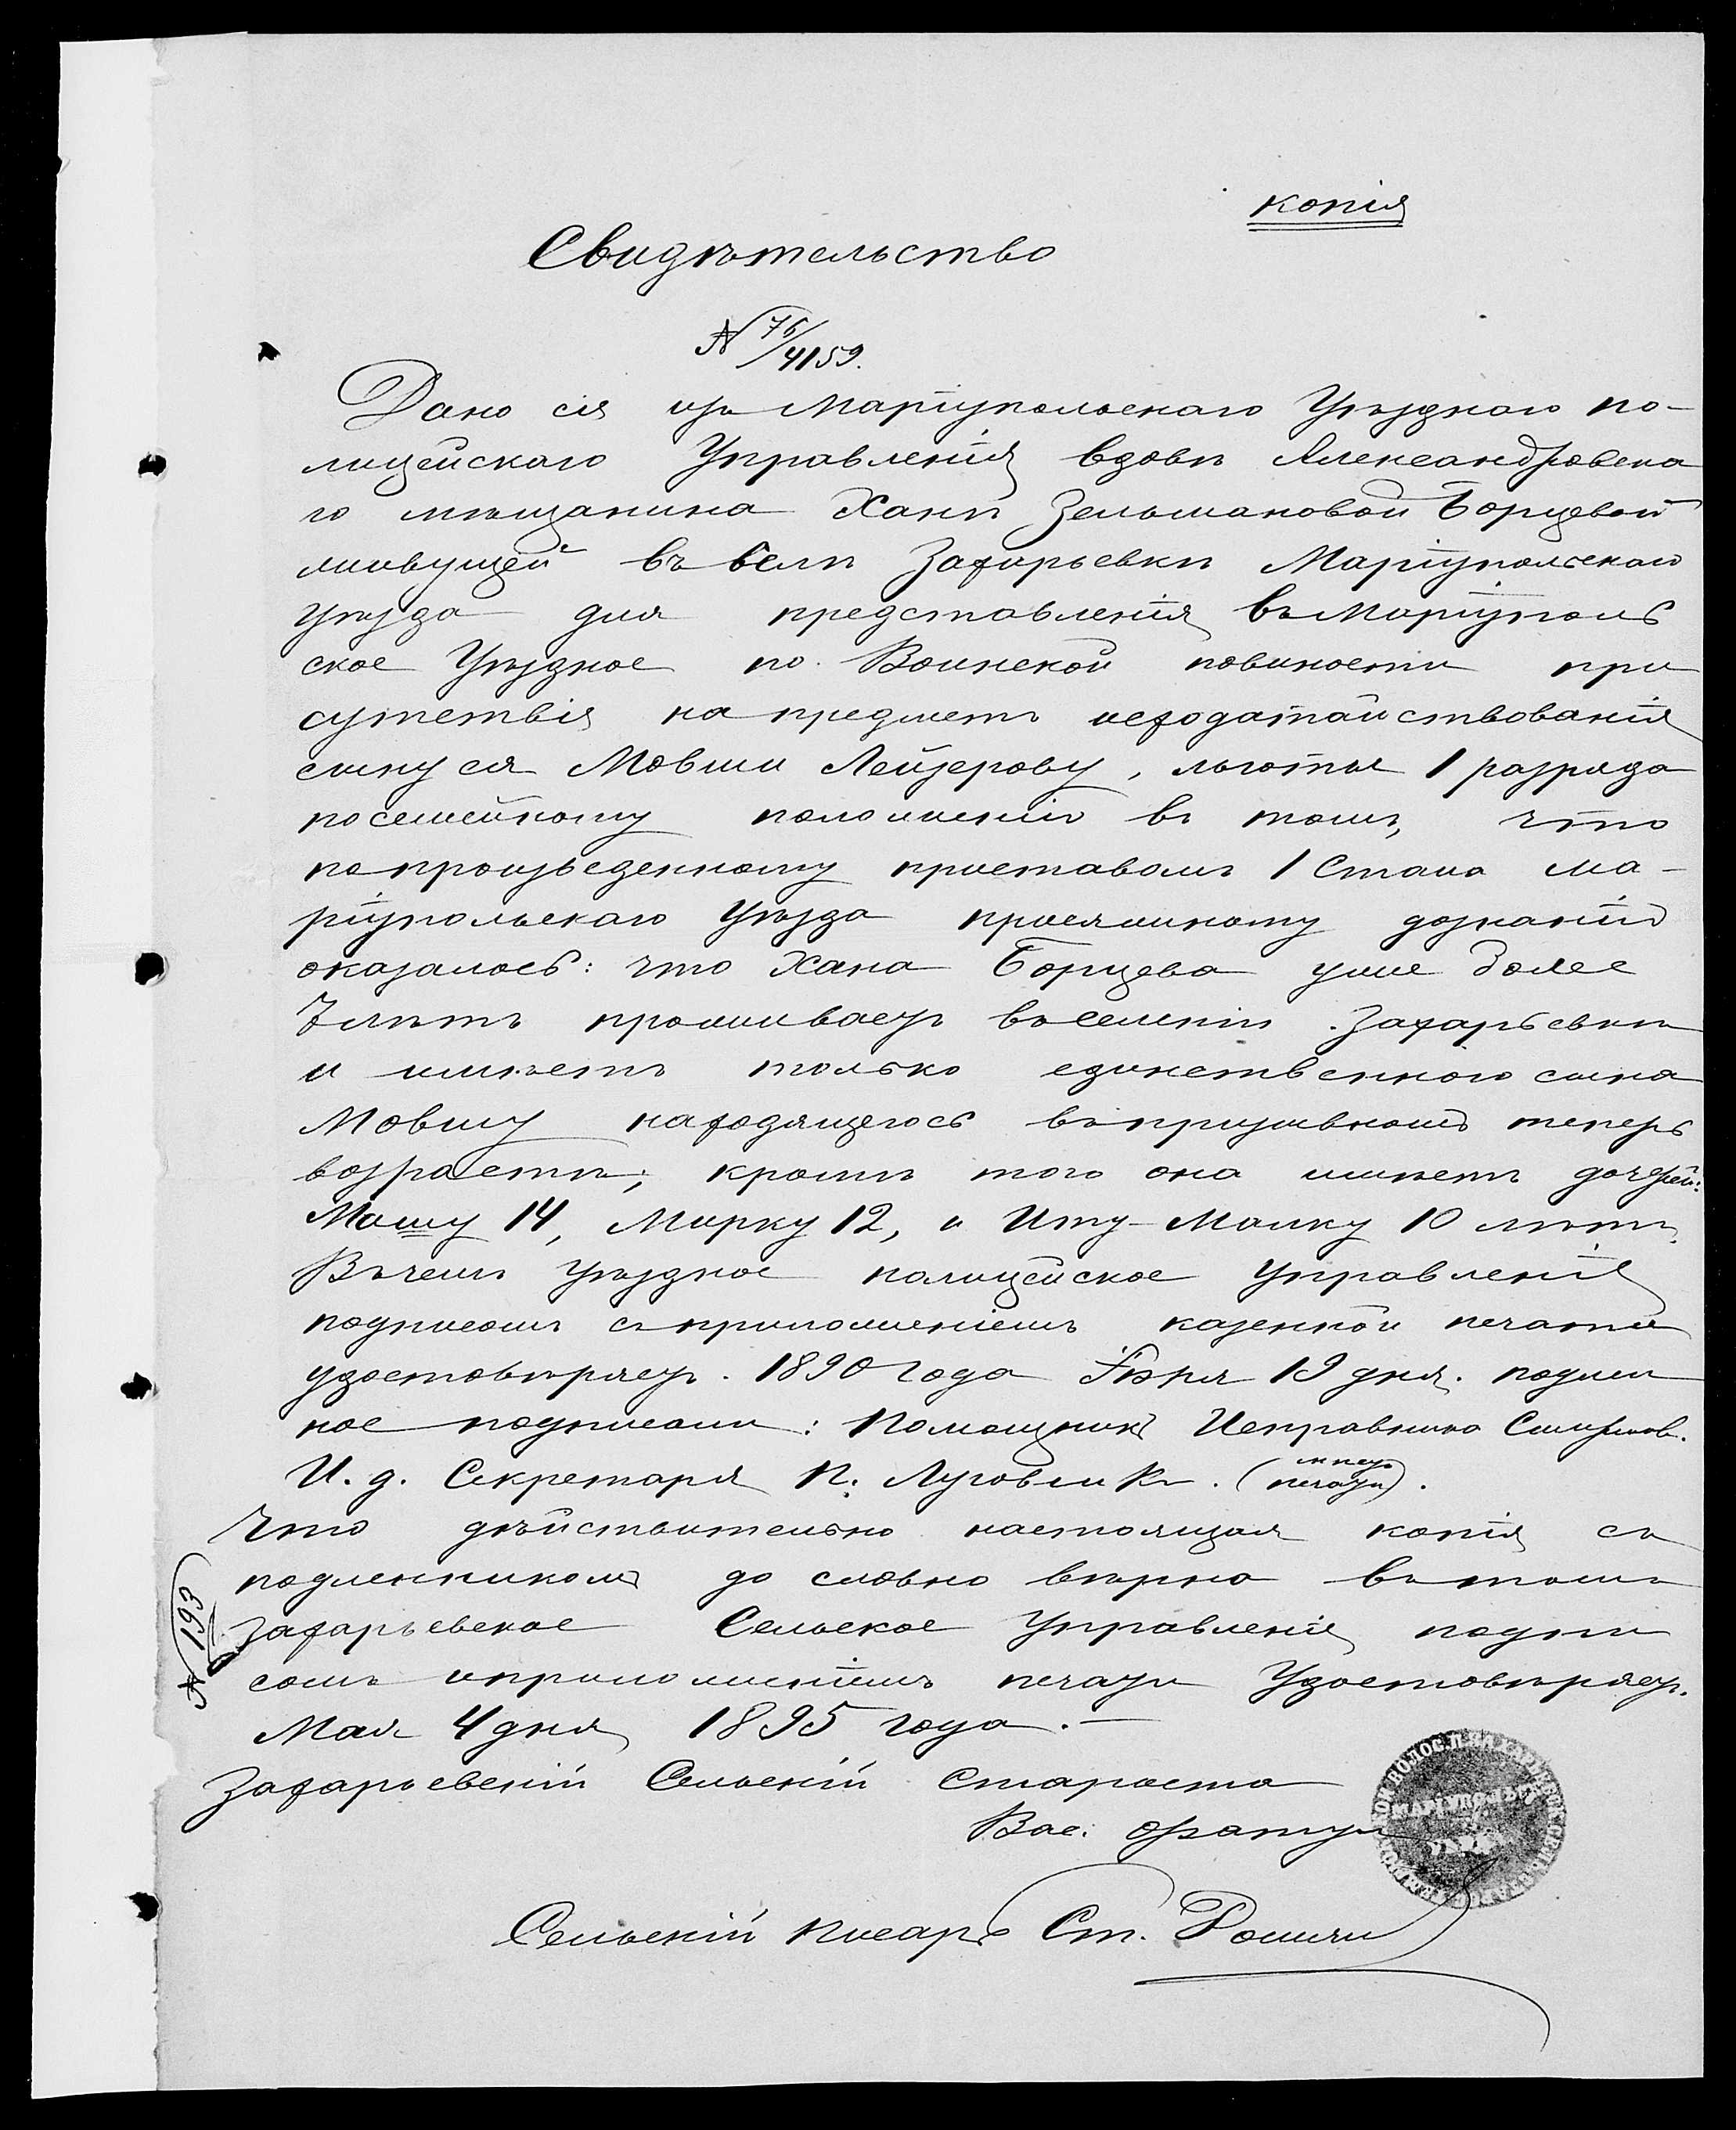 копія
Свидѣтельство
№ 76/4159.
Дано сія изъ Маріупольскаго Уѣзднаго по-
лицейскаго Управленія вдовѣ Александровска
го мѣщанина Ханѣ Зельмановой Борцевой
живущей въ селѣ Захарьевкѣ Маріупольскаго
уѣзда для представленія въ Маріуполь
ское Уѣздное по Воинской повиности при
сутствія на предметъ исходатайствованія
сыну ея Мовши Лейзерову, льготы 1 разряда
по семейному положенію въ томъ, что
по произведенному приставомъ 1 Стана Ма-
ріупольскаго Уѣзда присяжному дознанію
оказалось: что Хана Борцева уже более
7 лѣтъ проживаетъ въ селеніи Захарьевки
и имѣетъ только единственного сына
Мовшу находящегось въ призывномъ теперь
возрастѣ; кромѣ того она имѣетъ дочерей:
Машу 14, Мирку 12, и Иту-Малку 10 лѣтъ.
Въ чемъ Уѣздное полицейское Управленія
подписомъ съ приложеніемъ казенной печати
удостовѣряетъ. 1890 года 19 дня. подлин
ное подписали: Помощникъ Исправника Смирнов.
И. д. Секретаря П. (м печ. печати).
Что дѣйствительно настоящая копія съ
подленникомъ до словно вѣрна въ томъ
Захарьевское Сельское Управленія подпи
сомъ и приложеніемъ печати Удостовѣряетъ.
Мая 4 дня 1895 года.—
№ 193
Захарьевскій Сельскій Староста
Вас.
Маріупольск
Сельскій писарь Ст.